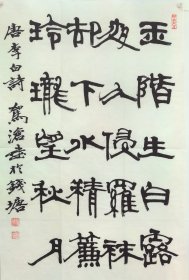 玉階生白露
夜久侵羅袜
却下水精簾
玲瓏望秋月
唐李白詩 寫 於錢塘